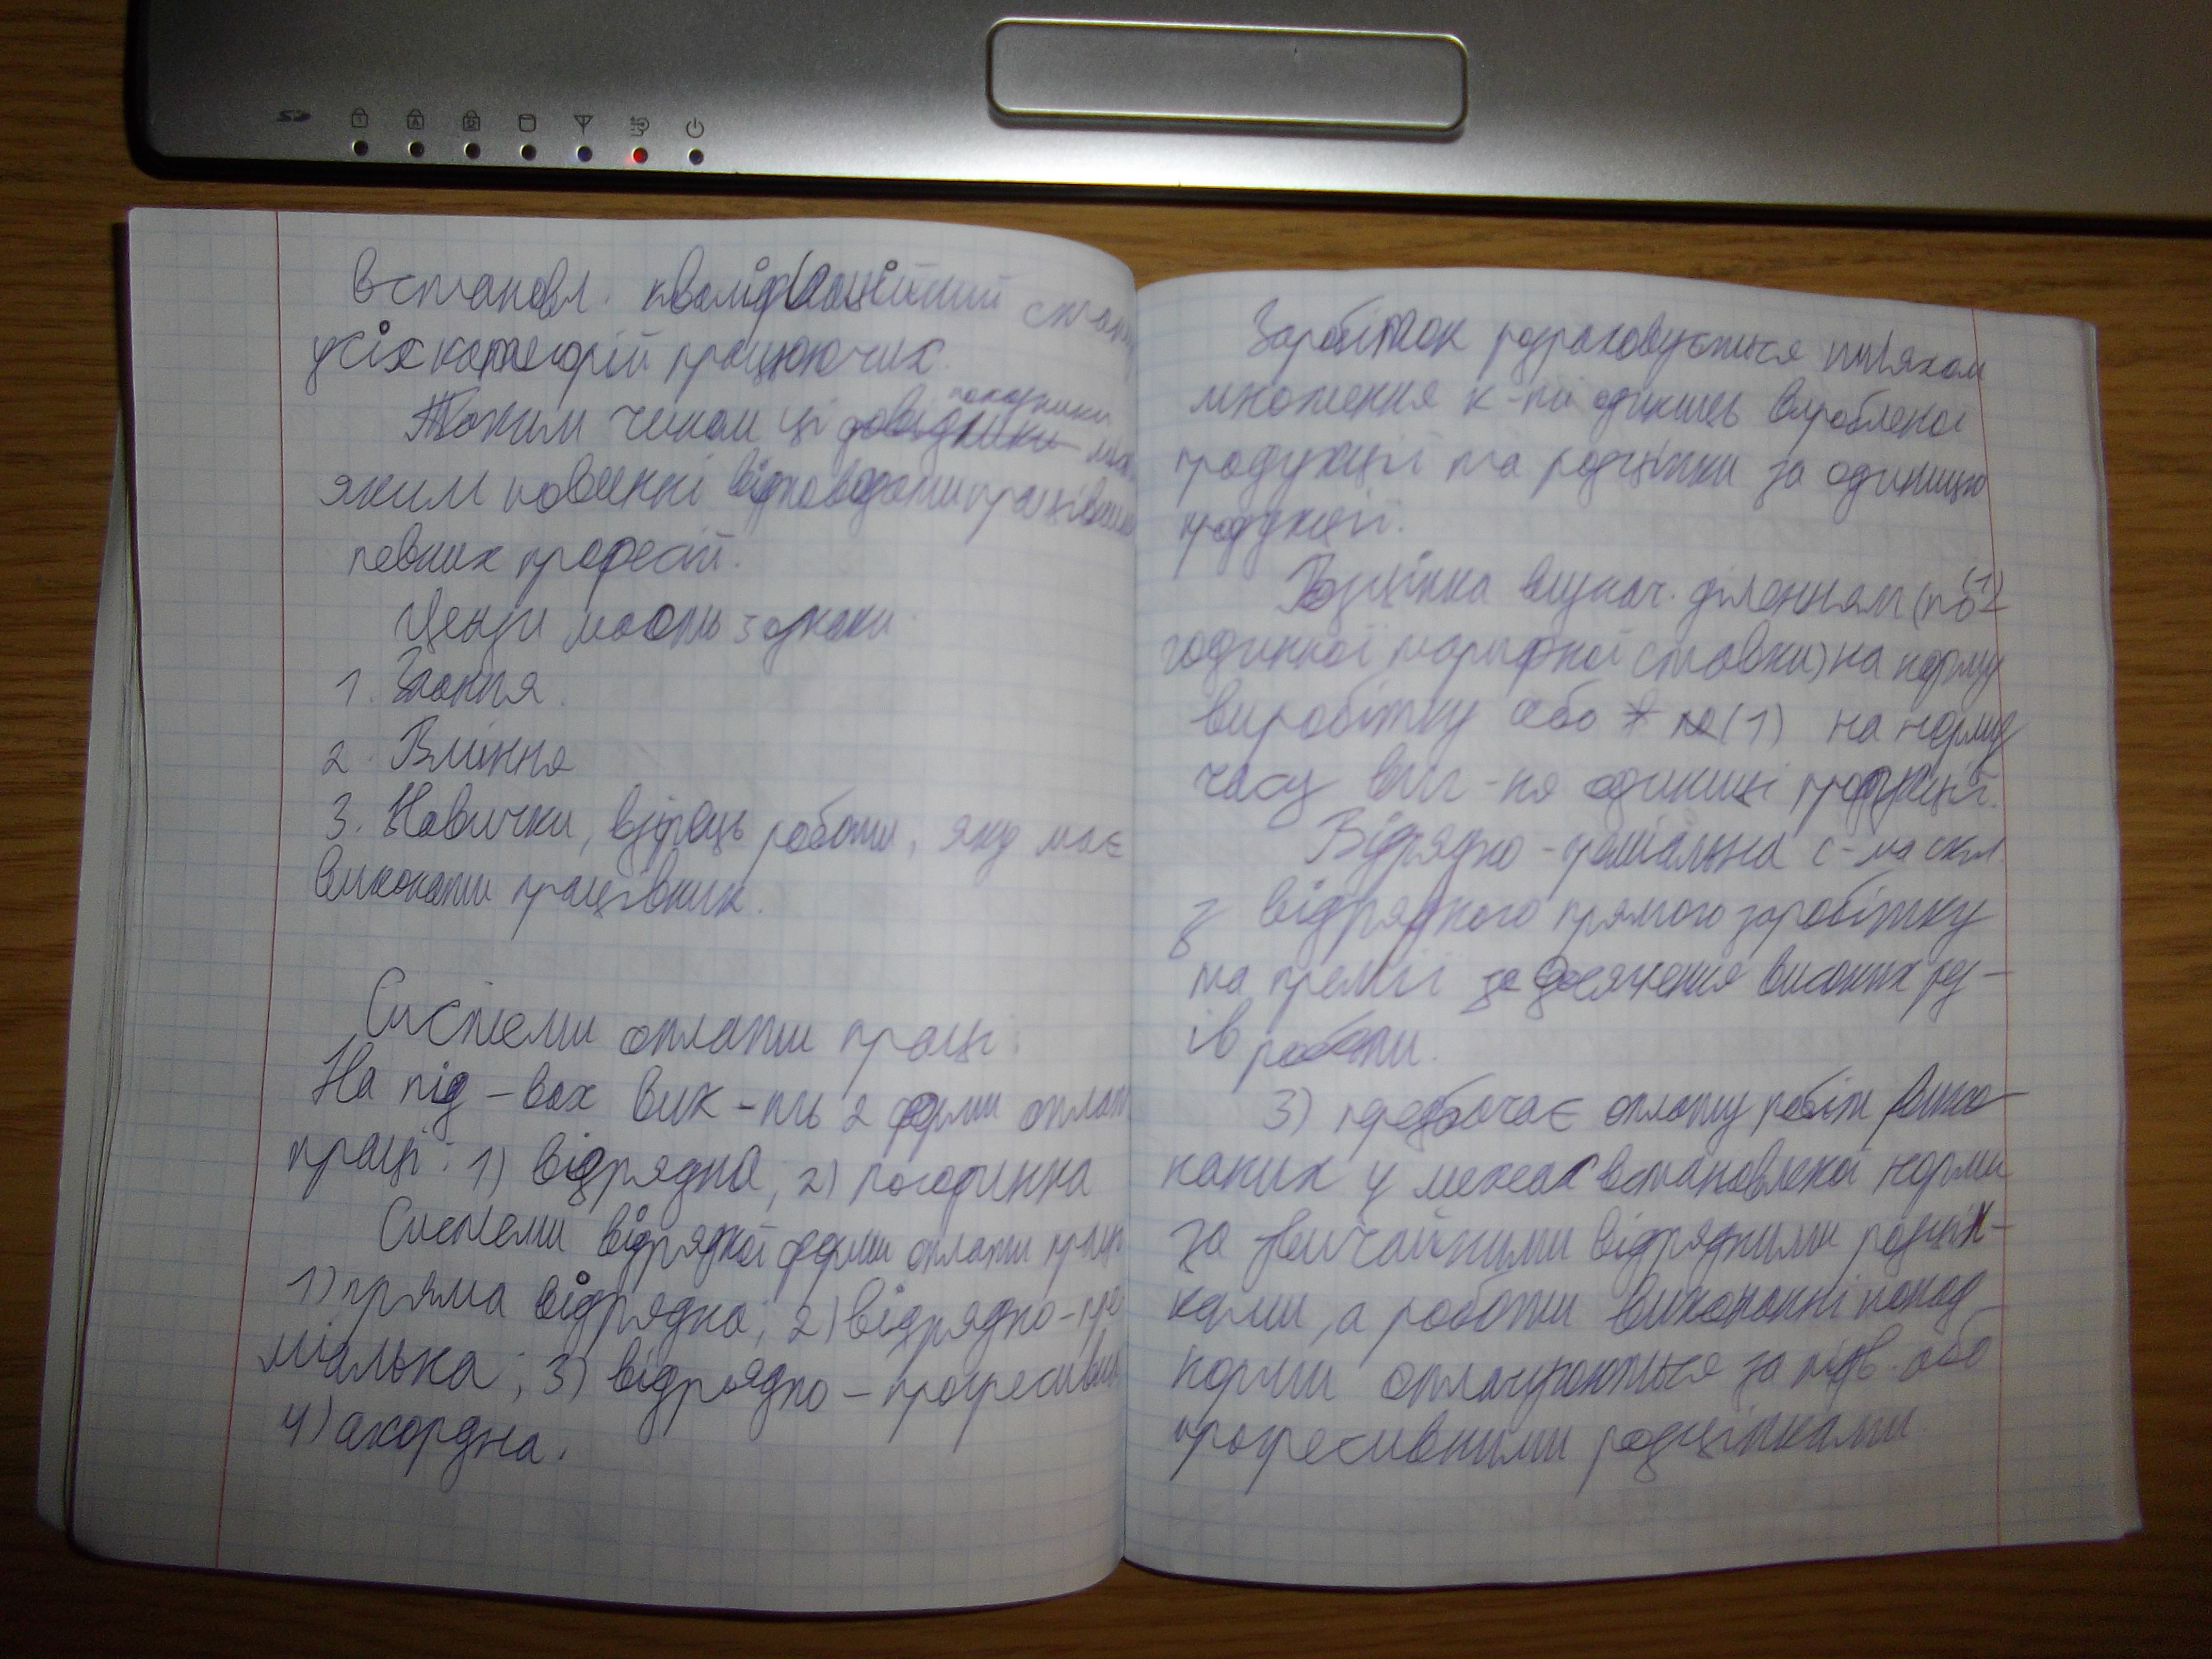 встановл. кваліфікаційний стан
усіх категорій працюючих.
Таким чином ці довідники показники
яким повинні відповідати працівники
певних професій.
Цензи мають 3 ознаки
1. Знання.
2. Вміння
3. Навички, взірець роботи, яку має
виконати працівник.
Системи оплати праці:
На під-вах вик-ть 2 форми оплат
праці: 1) відрядна; 2) погодинна
Системи відрядної форми оплати праці
1) пряма відрядна; 2) відрядно-пре
міальна; 3) відрядно-прогресивна
4) акордна.
Заробіток розраховується шляхом
множення к-ті одиниць виробленої
продукції та розцінки за одиницю
продукції.
Розцінка визнач. діленням (по (1)
годинної тарифної ставки) на норму
виробітку або * (1) на норму
часу виг-ня одиниці продукції.
Відрядно-преміальна с-ма скл.
з відрядного прямого заробітку
та премії за досягнення високих рез-
ів роботи.
3) передбачає оплату робіт вико-
наних у межах встановленої норми
за звичайними відрядними розцін-
ками, а роботи виконанні понад
норми оплачуються за підв. або
прогресивними розцінками